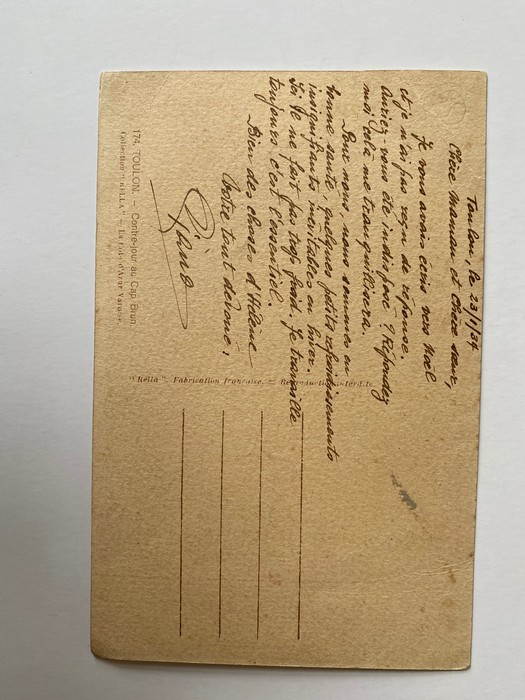 Toulon, le 23/1/34
Chère Maman et chère sœur,
Je vous avais écris vers Noël
et je n'ai pas reçu de réponse.
Auriez-vous été indispose ? Répondez
moi cela me tranquillisera.
Pour nous, nous sommes en
bonne santé, quelques petits refroidissements
insignifiants inévitables en hiver.
Ici il ne fait pas trop froid. Je travaille
toujours c'est l'essentiel.
Bien des choses d'Hélène
Votre tout dévoué,
"Rella". Fabrication française. — Reproduction interdite.
174. TOULON. — Contre-jour au Cap Brun.
Collection "RELLA" — Editions d'Art Varoise.